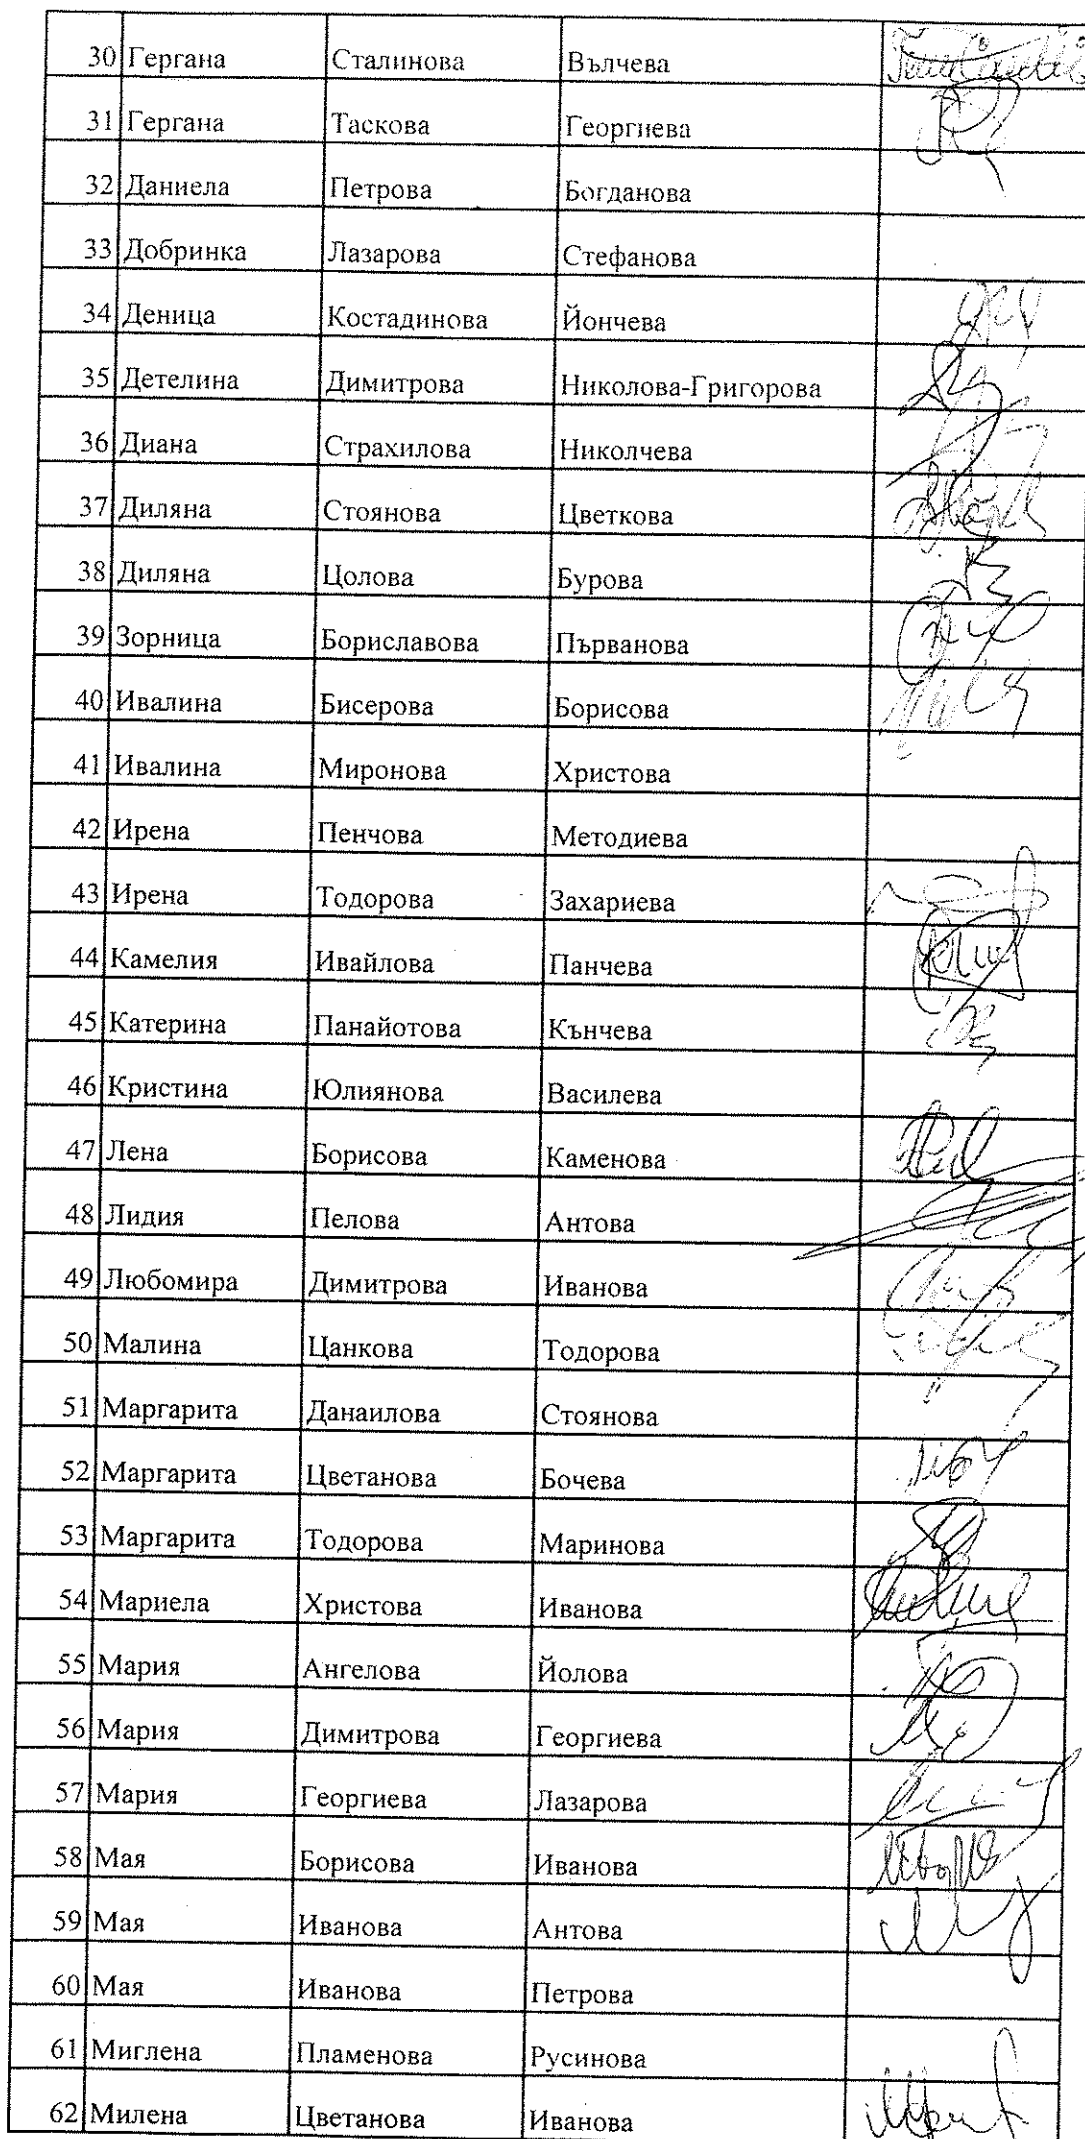 30 Гергана Сталинова Вълчева
31 Гергана Таскова Георгиева
32 Даниела Петрова Богданова
33 Добринка Лазарова Стефанова
34 Деница Костадинова Йончева
35 Детелина Димитрова Николова-Григорова
36 Диана Страхилова Николчева
37 Диляна Стоянова Цветкова
38 Диляна Цолова Бурова
39 Зорница Бориславова Първанова
40 Ивалина Бисерова Борисова
41 Ивалина Миронова Христова
42 Ирена Пенчова Методиева
43 Ирена Тодорова Захариева
44 Камелия Ивайлова Панчева
45 Катерина Панайотова Кънчева
46 Кристина Юлиянова Василева
47 Лена Борисова Каменова
48 Лидия Пелова Антова
49 Любомира Димитрова Иванова
50 Малина Цанкова Тодорова
51 Маргарита Данаилова Стоянова
52 Маргарита Цветанова Бочева
53 Маргарита Тодорова Маринова
54 Мариела Христова Иванова
55 Мария Ангелова Йолова
56 Мария Димитрова Георгиева
57 Мария Георгиева Лазарова
58 Мая Борисова Иванова
59 Мая Иванова Антова
60 Мая Иванова Петрова
61 Миглена Пламенова Русинова
62 Милена Цветанова Иванова